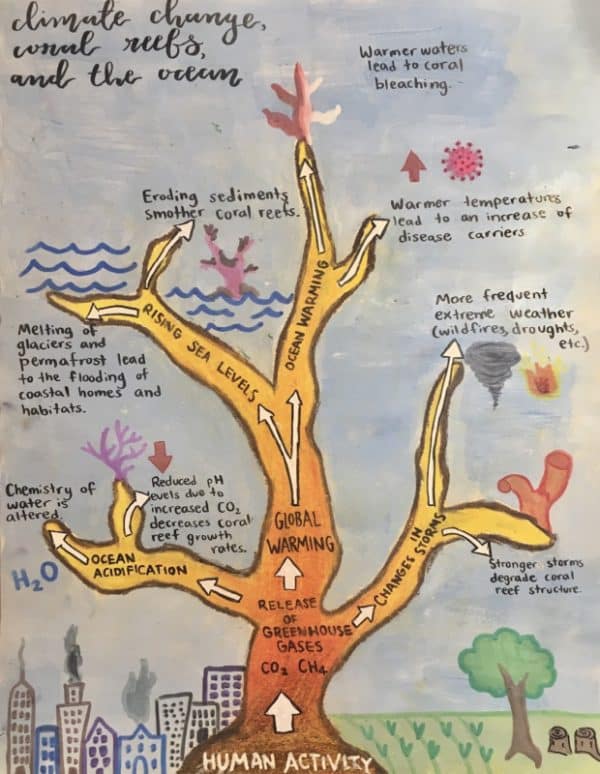 climate change,
coral reefs,
and the ocean
Warmer waters
lead to coral
bleaching.
Eroding sediments
smother coral reefs.
Warmer temperatures
lead to an increase of
disease carriers
More frequent
extreme weather
(wildfires, droughts,
etc.)
Melting of
glaciers and
permafrost lead
to the flooding of
coastal homes and
habitats.
RISING SEA LEVELS
OCEAN WARMING
Chemistry of
water is
altered.
Reduced pH
levels due to
increased CO2
decreases coral
reef growth
rates.
GLOBAL
WARMING
CHANGES IN
STORMS
Stronger storms
degrade coral
reef structure.
OCEAN
ACIDIFICATION
H2O
RELEASE
OF
GREENHOUSE
GASES
CO2 CH4
HUMAN ACTIVITY